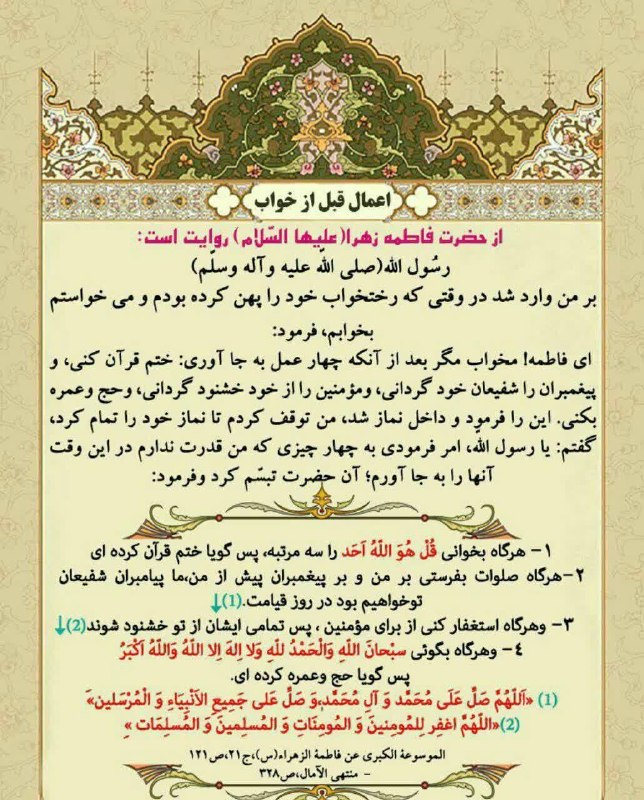 اعمال قبل از خواب
از حضرت فاطمه زهرا(علیها السّلام) روایت است:
رسُول الله(صلی اللّه علیه وآله وسلّم)
بر من وارد شد در وقتی که رختخواب خود را پهن کرده بودم و می خواستم
بخوابم، فرمود:
ای فاطمه! مخواب مگر بعد از آنکه چهار عمل به جا آوری: ختم قرآن کنی، و
پیغمبران را شفیعان خود گردانی، ومؤمنین را از خود خشنود گردانی، وحج وعمره
بکنی. این را فرمود و داخل نماز شد، من توقف کردم تا نماز خود را تمام کرد،
گفتم: یا رسول اللّه، امر فرمودی به چهار چیزی که من قدرت ندارم در این وقت
آنها را به جا آورم؛ آن حضرت تبسّم کرد وفرمود:
۱- هرگاه بخوانی قُلْ هُوَ اللّهُ اَحَد را سه مرتبه، پس گویا ختم قرآن کرده ای
۲-هرگاه صلوات بفرستی بر من و بر پیغمبران پیش از من،ما پیامبران شفیعان
توخواهیم بود در روز قیامت.(1)↓
۳- وهرگاه استغفار کنی از برای مؤمنین ، پس تمامی ایشان از تو خشنود شوند(2)↓
٤- وهرگاه بگوئی سبْحانَ اللّهِ وَالْحَمْدُ للّهِ وَلا اِلهَ اِلا اللّهُ وَاللّهُ اَکْبَرُ
پس گویا حج وعمره کرده ای.
(1) «اَللّهُمَّ صَلِّ عَلَی مُحَمَّد وَ آلِ مُحَمَّدٍ،وَ صَلِّ عَلی جَمِیعِ الاَنْبِیَاءِ وَ الْمُرْسَلِین»
(2)«اللّهُمَّ اغفِر لِلمُومِنینَ وَ المُومِنَاتِ وَ المُسلِمینَ وَ المُسلِمَات »
الموسوعة الکبری عن فاطمة الزهراء(س)،ج۲۱،ص۱۲۱
- منتهی الآمال،ص۳۲۸